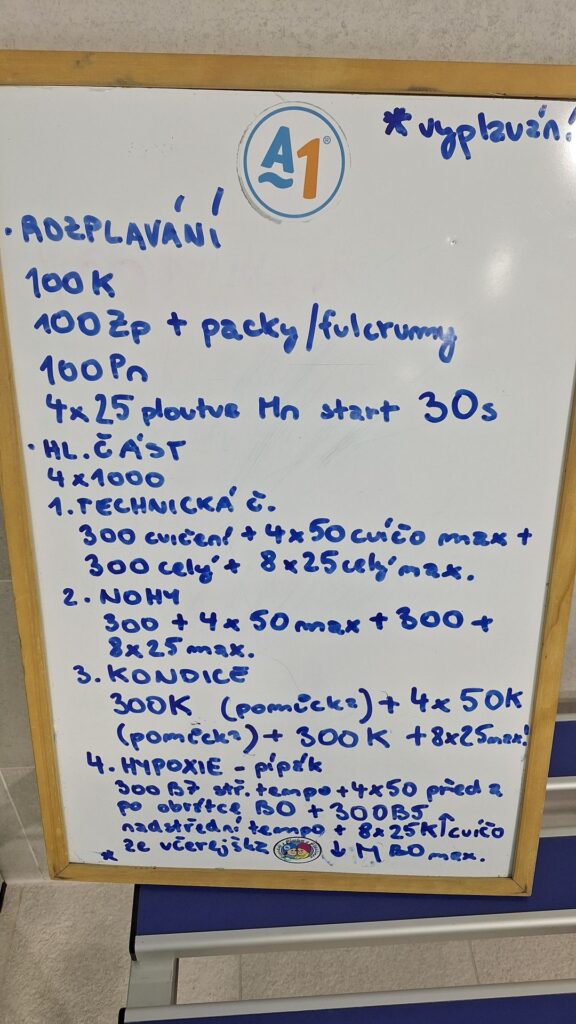 * vyplaván!
A1
• ROZPLAVÁNÍ
100K
100Zp + packy/fulcrumy
100Pn
4x25 ploutve Mn start 30s
• HL. ČÁST
4x1000
1. TECHNICKÁ Č.
300 cvičení + 4x50 cvičo max +
300 celý + 8x25 celý max.
2. NOHY
300 + 4x50 max + 300 +
8x25 max.
3. KONDICE
300K (pomůcka) + 4x50K
(pomůcka) + 300K + 8x25max!
4. HYPOXIE - pípák
300 B7 stř. tempo + 4x50 před a
po obrátce B0 + 300B5
nadstřední tempo + 8x25K↑cvičo
ze včerejška ↓ M B0 max.
*